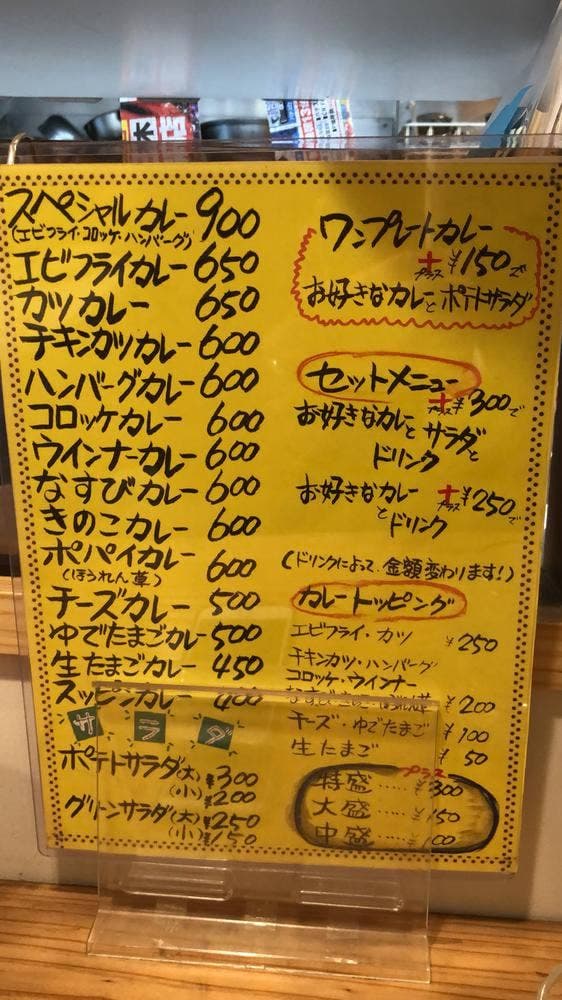 スペシャルカレー 900
(エビフライ・コロッケ・ハンバーグ)
エビフライカレー 650
カツカレー 650
チキンカツカレー 600
ハンバーグカレー 600
コロッケカレー 600
ウインナーカレー 600
なすびカレー 600
きのこカレー 600
ポパイカレー 600
(ほうれん草)
チーズカレー 500
ゆでたまごカレー 500
生たまごカレー 450
スッピンカレー 400
サラダ
ポテトサラダ(大) ¥300
(小) ¥200
グリーンサラダ(大) ¥250
(小) ¥150
ワンプレートカレー
+プラス ¥150で
お好きなカレーとポテトサラダ
セットメニュー
+プラス ¥300で
お好きなカレーとサラダと
ドリンク
お好きなカレー +プラス ¥250で
とドリンク
(ドリンクによって金額変わります!)
カレートッピング
エビフライ・カツ ¥250
チキンカツ・ハンバーグ
コロッケ・ウインナー
なすび・きのこ・ほうれん草 ¥200
チーズ・ゆでたまご ¥100
生たまご ¥50
プラス
特盛 ..... ¥300
大盛 ..... ¥150
中盛 ..... ¥100